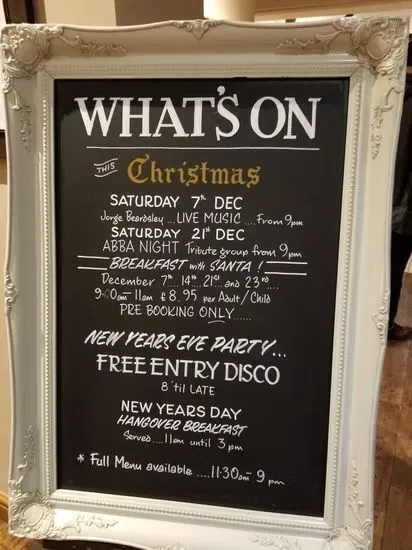 WHAT'S ON
THIS Christmas
SATURDAY 7th DEC
Jorge Beardsley ... LIVE MUSIC .... From 9pm
SATURDAY 21st DEC
ABBA NIGHT Tribute group from 9pm
BREAKFAST with SANTA !
December 7th... 14th.. 21st and 23rd....
9:00am - 11am £8.95 per Adult / Child
PRE BOOKING ONLY......
NEW YEARS EVE PARTY...
FREE ENTRY DISCO
8 'til LATE
NEW YEARS DAY
HANGOVER BREAKFAST
Served .... 11am until 3pm
* Full Menu available .... 11:30am - 9pm